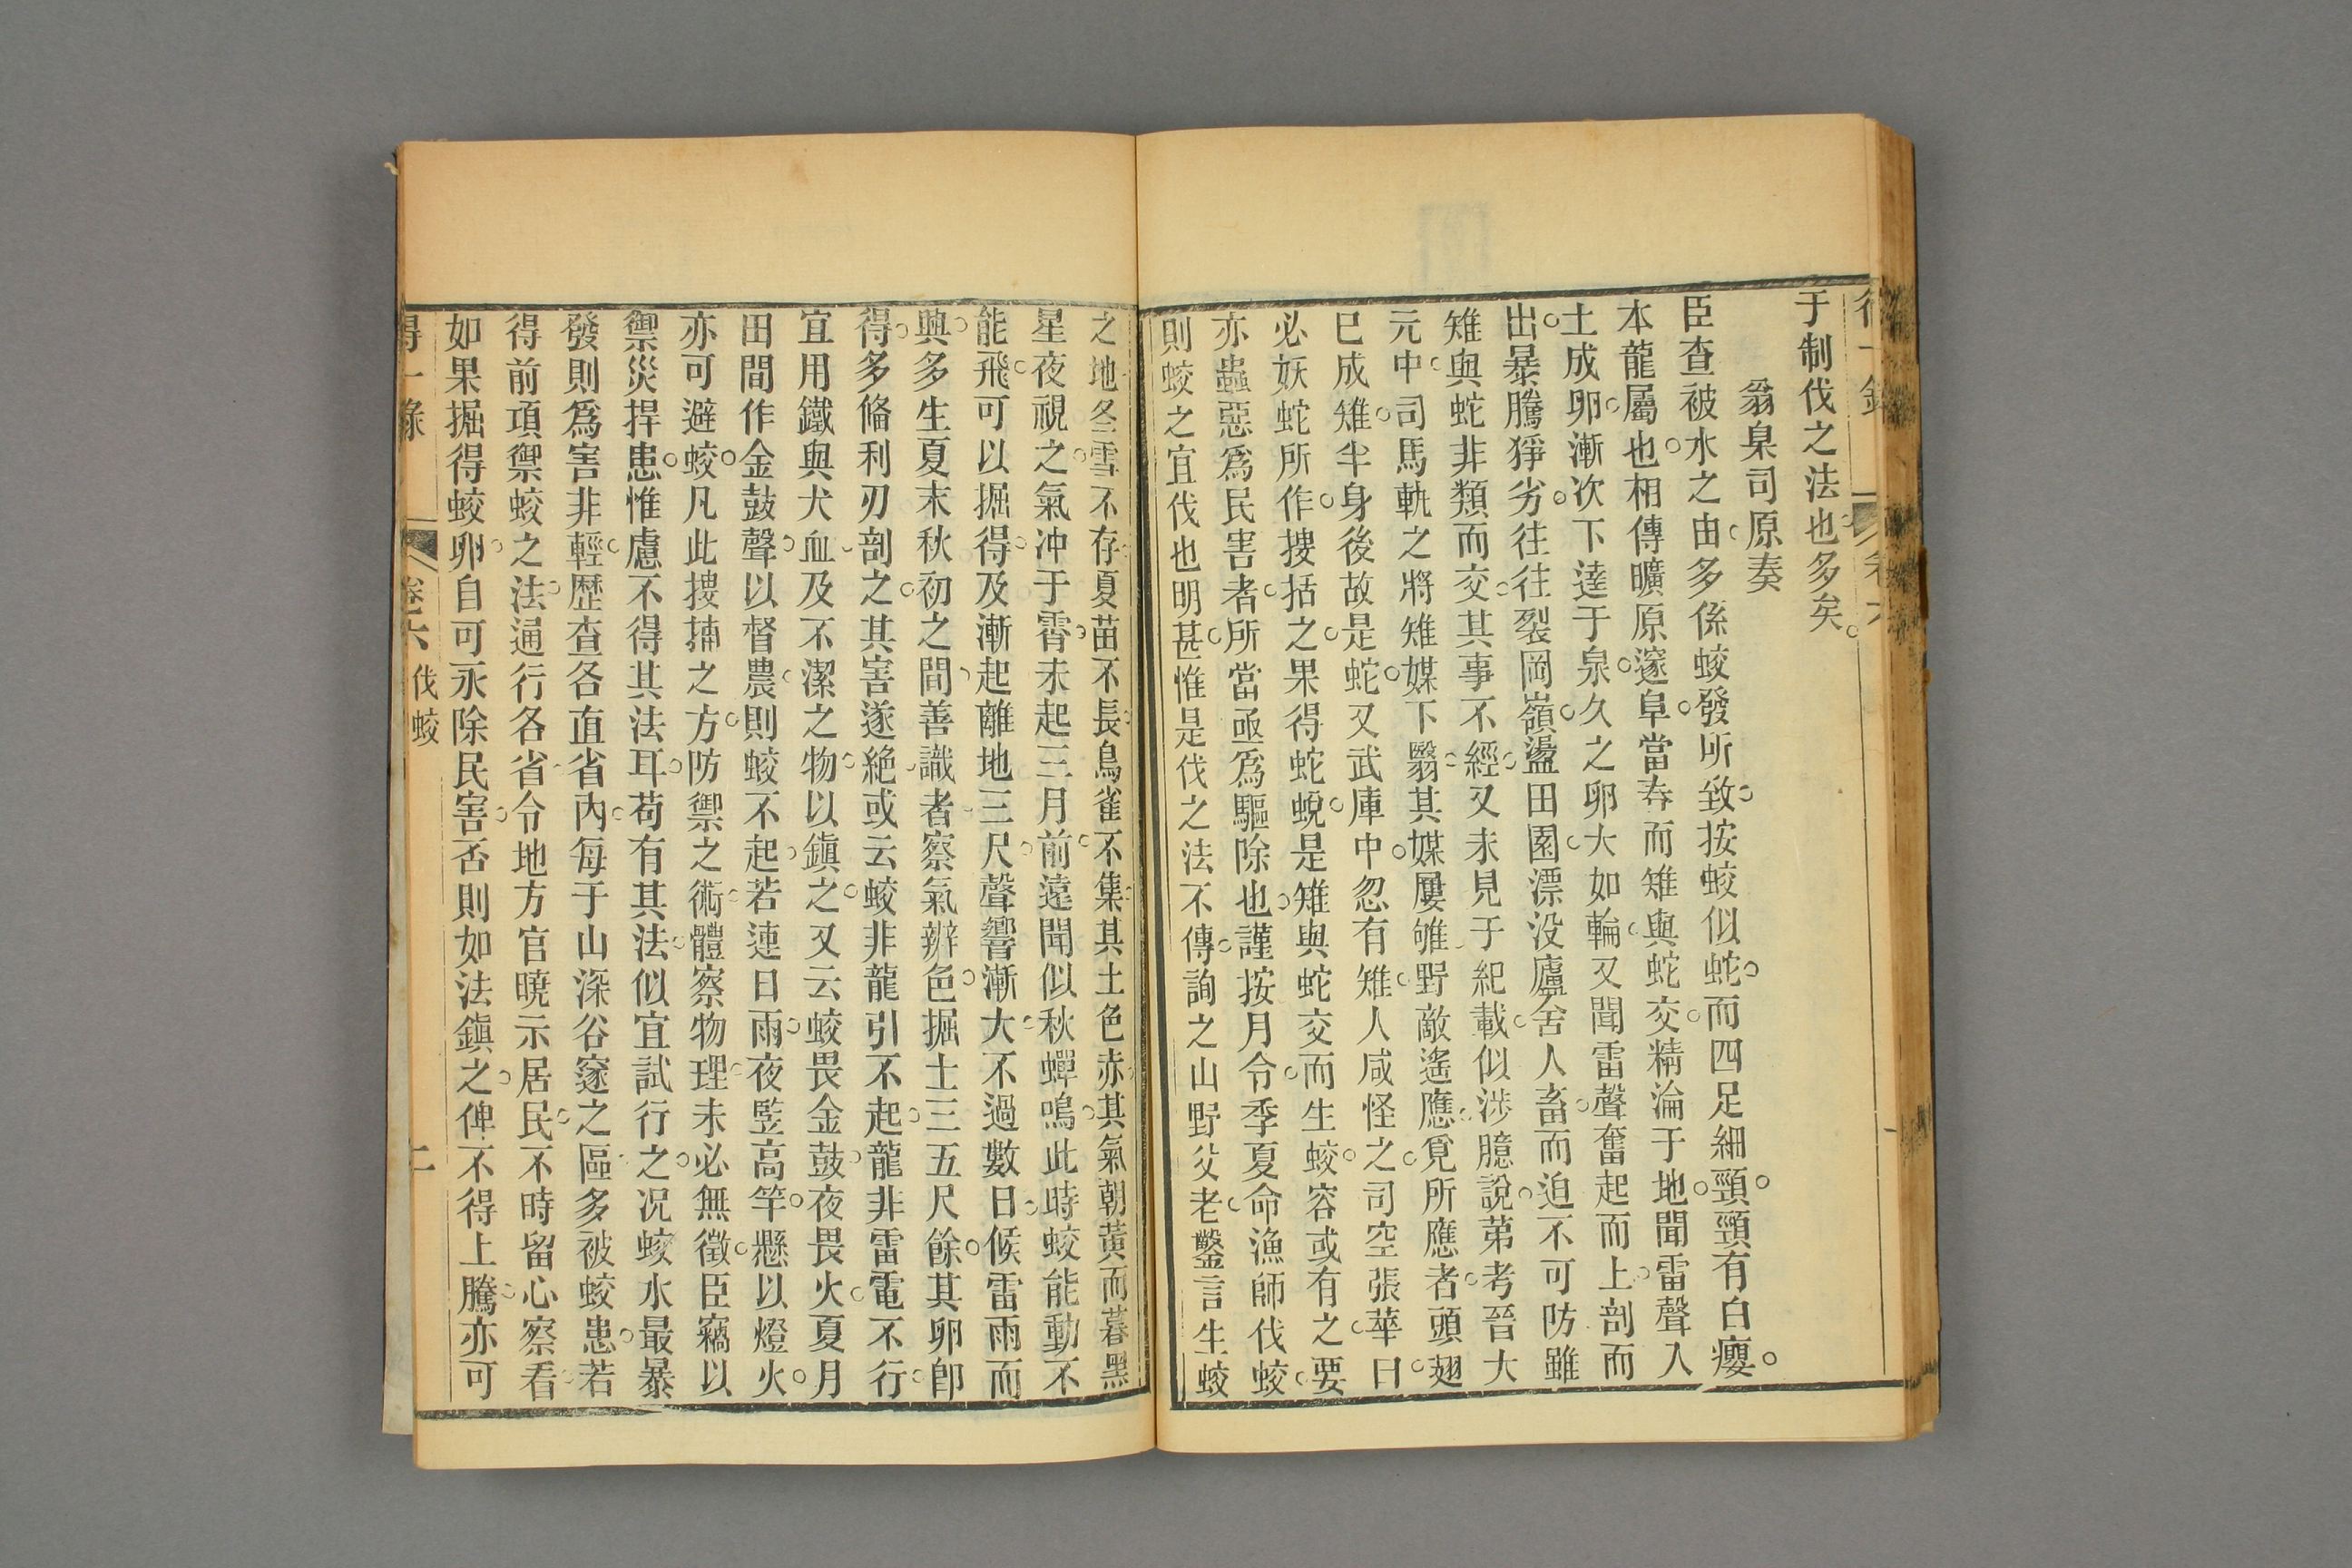 于制伐之法也多矣
翁臬司原奏
臣查被水之由多係蛟發所致按蛟似蛇而四足細頸頸有白癭
本龍屬也相傳曠原邃阜當春而雉與蛇交精淪于地聞雷聲入
土成卵漸次下達于泉久之卵大如輪又聞雷聲奮起而上剖而
出暴騰猙劣往往裂岡嶺盪田園漂没廬舍人畜而迫不可防雖
雉與蛇非類而交其事不經又未見于紀載似涉臆說苐考晉大
元中司馬軌之將雉媒下翳其媒屢雊野敵遙應覓所應者頭翅
已成雉半身後故是蛇又武庫中忽有雉人咸怪之司空張華曰
必妖蛇所作搜括之果得蛇蛻是雉與蛇交而生蛟容或有之要
亦蟲惡爲民害者所當亟爲驅除也謹按月令季夏命漁師伐蛟
則蛟之宜伐也明甚惟是伐之法不傳詢之山野父老鑿言生蛟
之地冬雪不存夏苗不長鳥雀不集其土色赤其氣朝黃而暮黑
星夜視之氣冲于霄未起三月前遠聞似秋蟬鳴此時蛟能動不
能飛可以掘得及漸起離地三尺聲響漸大不過數日候雷雨而
興多生夏末秋初之間善識者察氣辨色掘土三五尺餘其卵卽
得多備利刃剖之其害遂絶或云蛟非龍引不起龍非雷電不行
宜用鐵與犬血及不潔之物以鎮之又云蛟畏金鼓夜畏火夏月
田間作金鼓聲以督農則蛟不起若連日雨夜竪高竿懸以燈火
亦可避蛟凡此搜捕之方防禦之術體察物理未必無徵臣竊以
禦災捍患惟慮不得其法耳苟有其法似宜試行之况蛟水最暴
發則爲害非輕歷查各直省內每于山深谷邃之區多被蛟患若
得前項禦蛟之法通行各省令地方官曉示居民不時留心察看
如果掘得蛟卵自可永除民害否則如法鎮之俾不得上騰亦可
得一錄 卷六 伐蛟 二